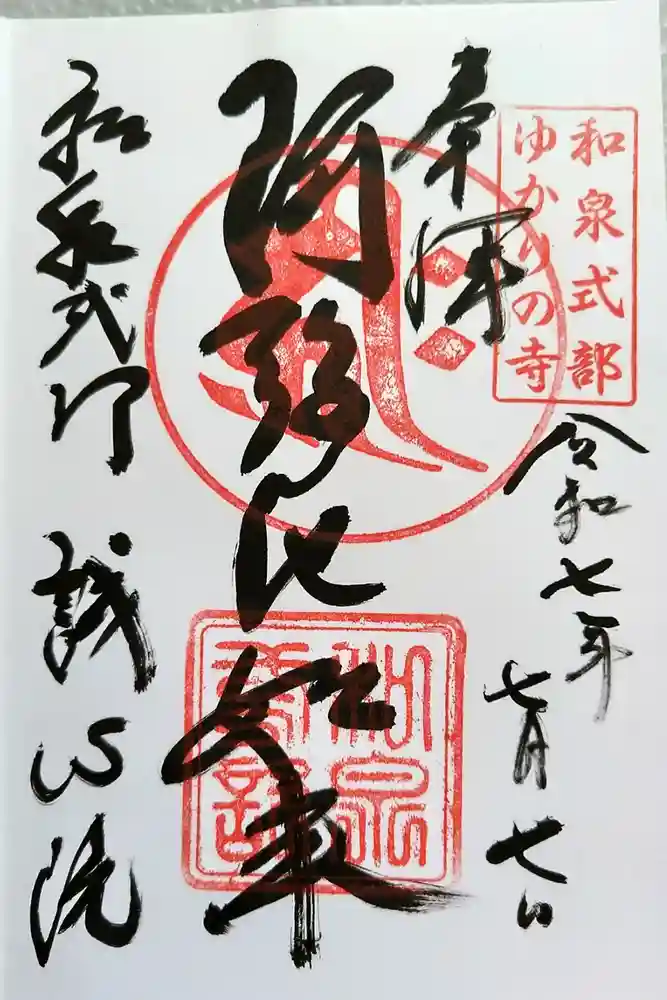 和泉式部
ゆかりの寺
奉拝
令和七年
七月七日
阿弥陀如来
和泉式部 誠心院